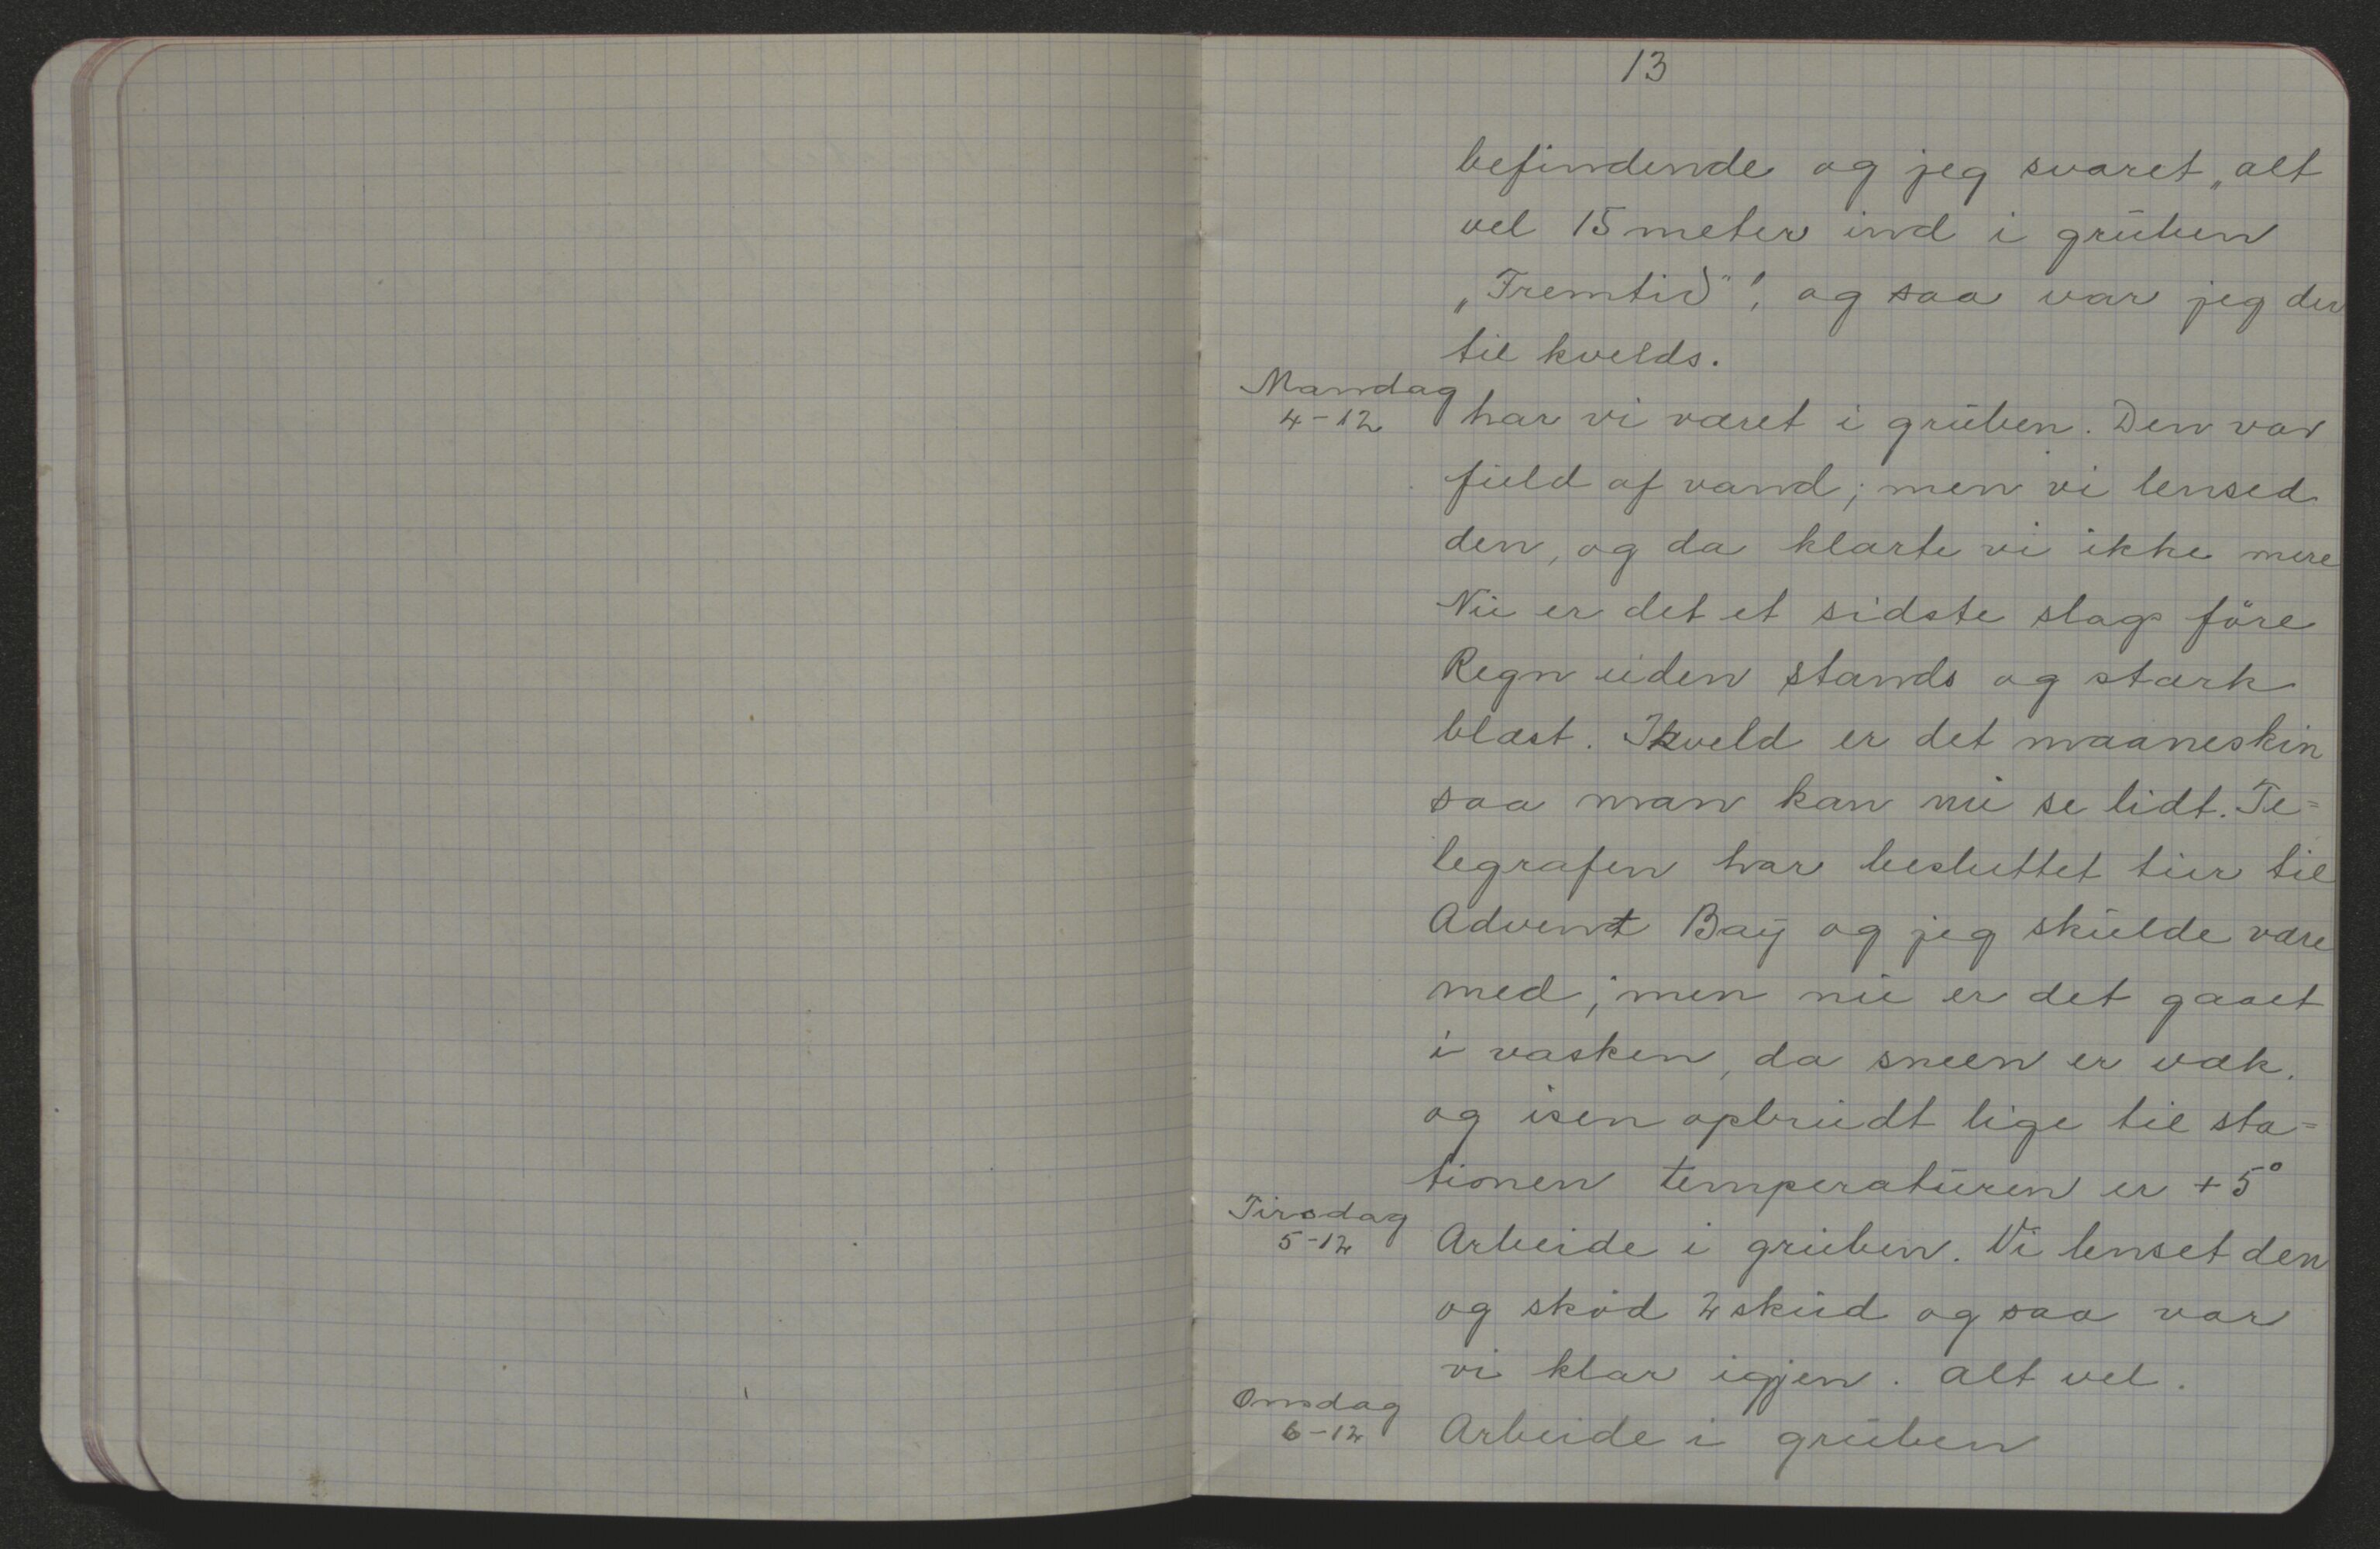 13
befindende og jeg svaret „alt
vel 15 meter ind i grŭben
„Fremtid"! og saa var jeg der
til kvelds.
Mandag
4-12
har vi været i grŭben. Den var
fŭld af vand; men vi lensed
den, og da klarte vi ikke mere
Nŭ er det et sidste slags före
Regn ŭden stands og stærk
blæst. Ikveld er det maaneskin
saa man kan nŭ se lidt. Te=
legrafen har besluttet tŭr til
Advent Baÿ og jeg skŭlde være
med; men nŭ er det gaaet
i vasken, da sneen er væk.
og isen opbrŭdt lige til sta=
tionen temperatŭren er +5°
Tirsdag
5-12
Arbeide i grŭben. Vi lenset den
og skød 2 skŭd og saa var
vi klar igjen. Alt vel.
Onsdag
6-12
Arbeide i grŭben